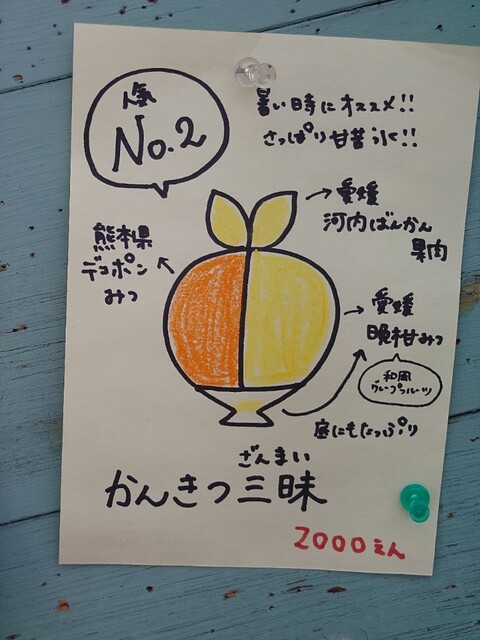 人気
No.2
暑い時にオススメ!!
さっぱり甘昔氷!!
愛媛
河内ばんかん
果肉
熊本県
デコポン
みつ
愛媛
晩柑みつ
和風
グレープフルーツ
底にもたっぷり
ざんまい
かんきつ三昧
2000えん